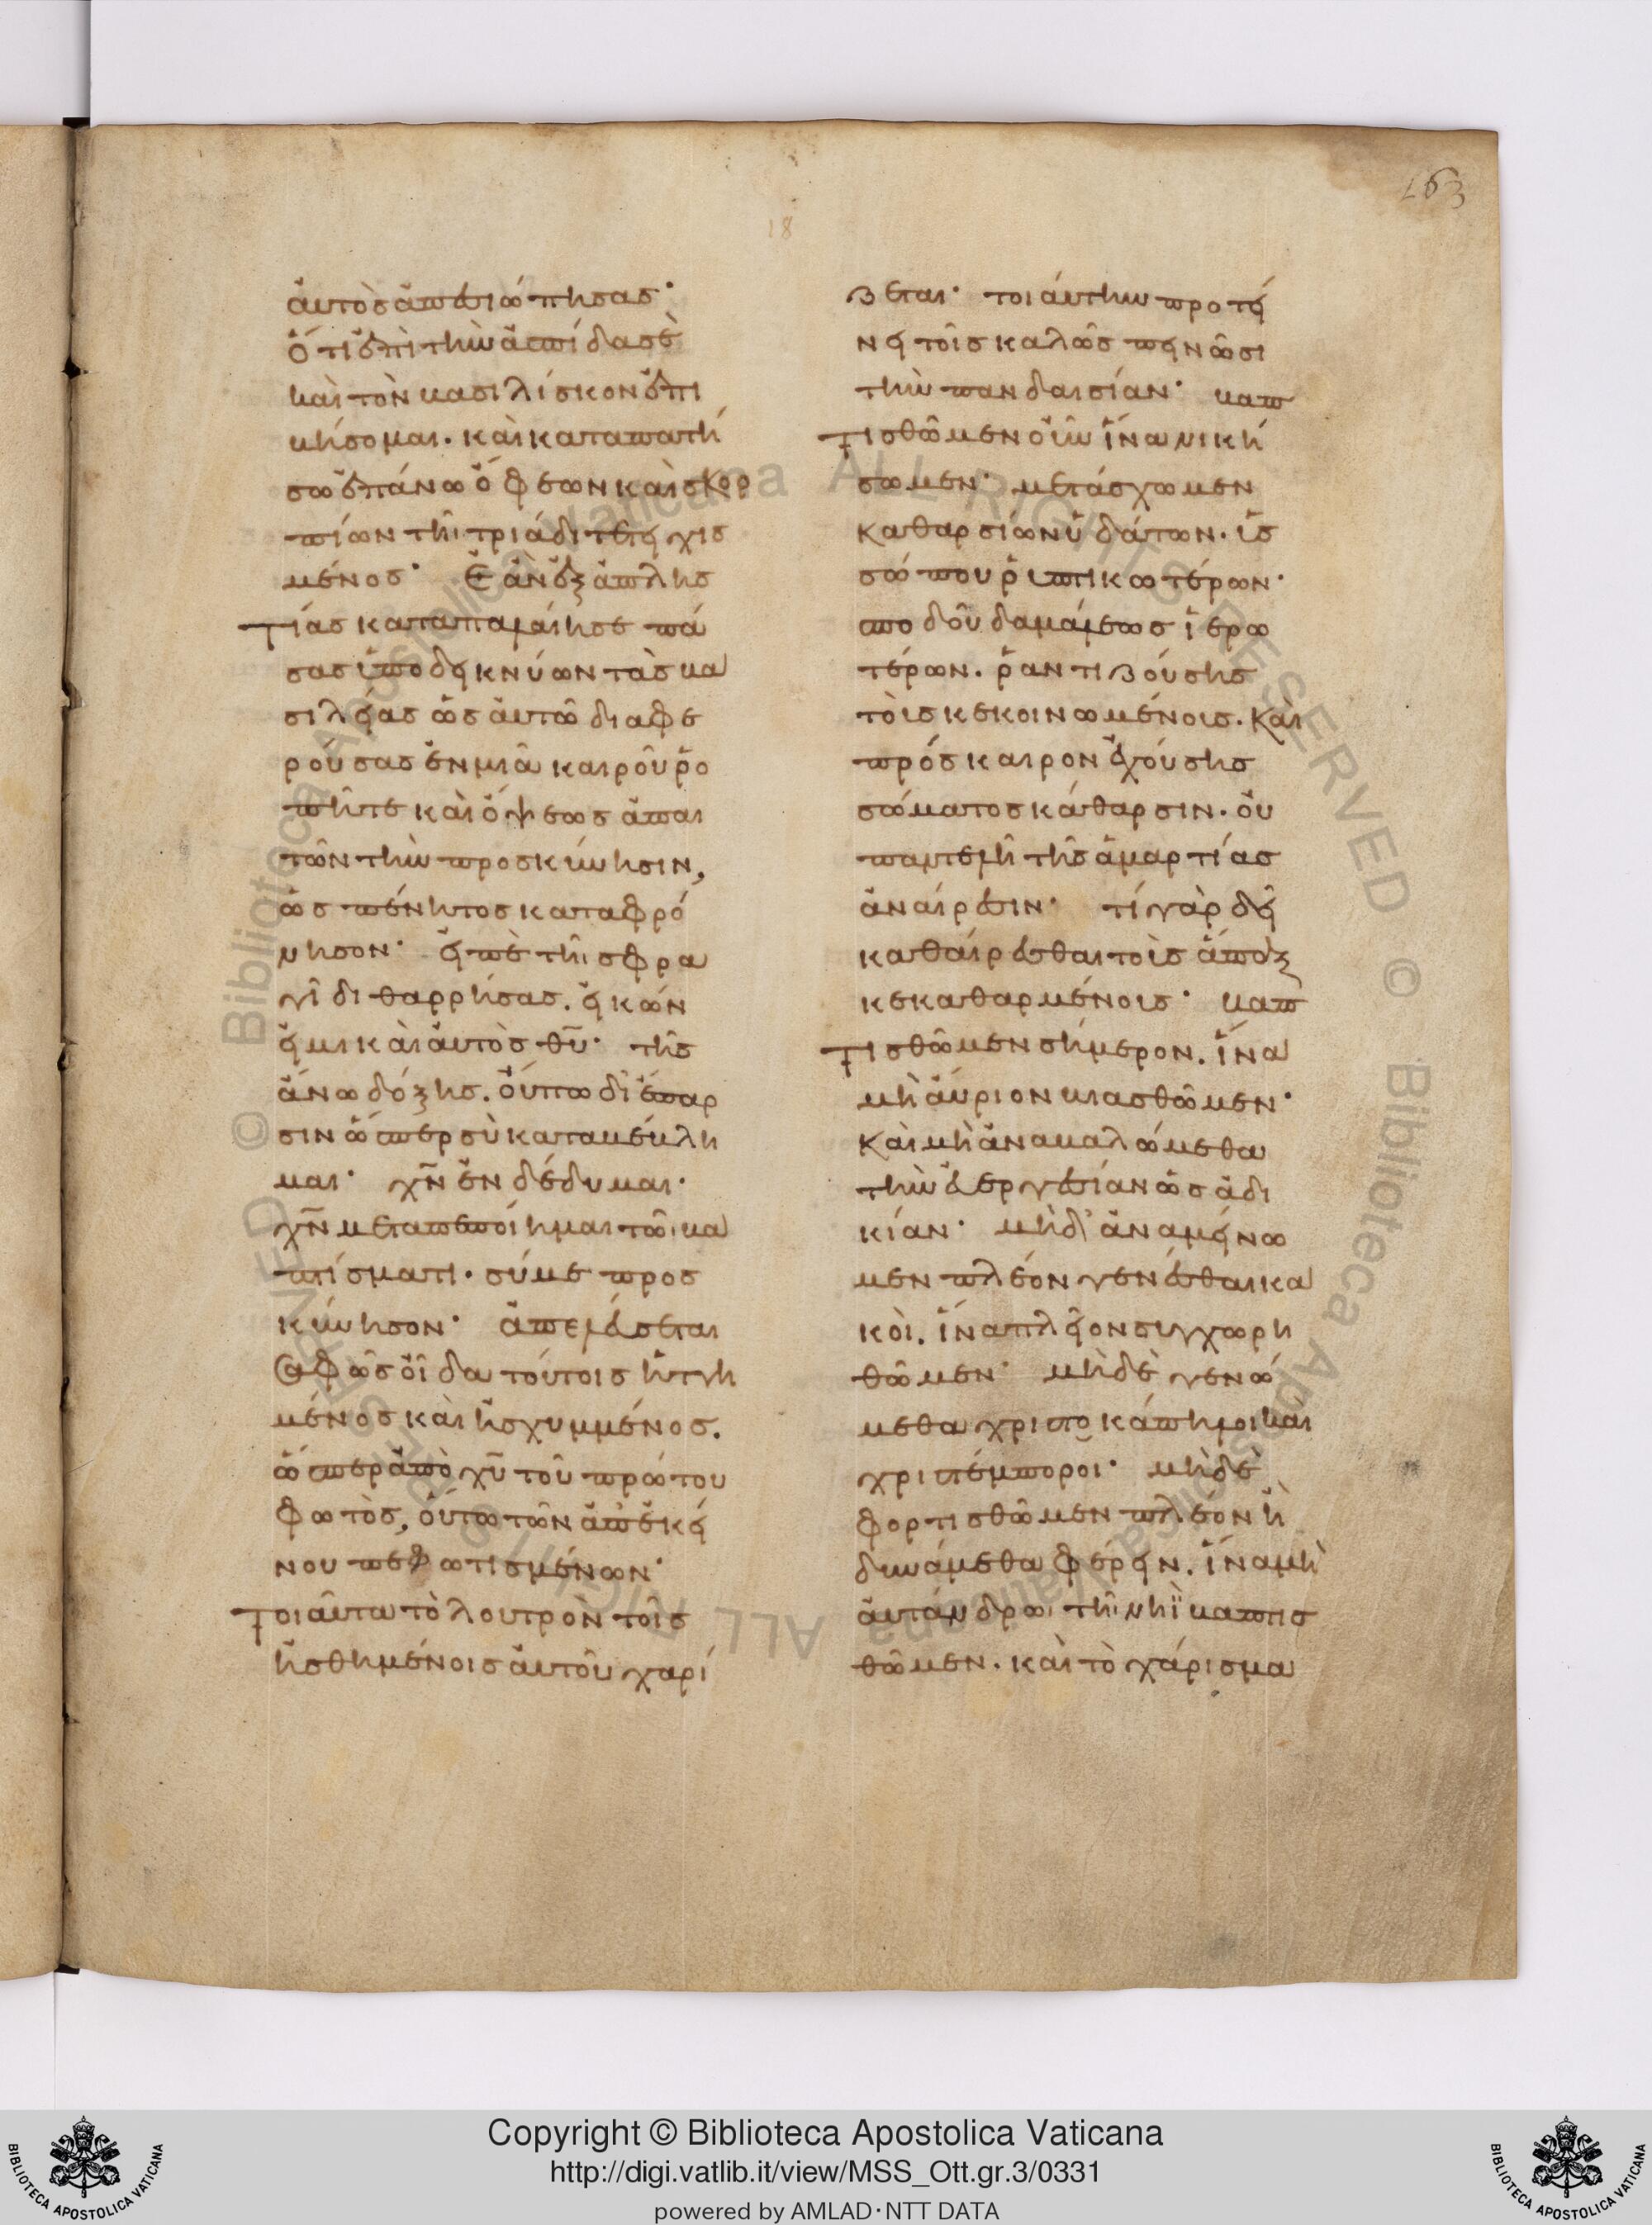 163
18
αὐτὸς ἀπεσιώπησας·
ὅτι ἐπὶ τὴν ἀσπίδα σὲ
καὶ τὸν βασιλίσκον ἐπι
βήσομαι. καὶ καταπατή
σω ἐπάνω ὄφεων καὶ σκορ
πίων τῆι τριάδι τετειχισ
μένος· Ἐὰν ἐξ ἀπλησ
τίας καταπαλαίῃ σε πά
σας ὑποδεικνύων τὰς βα
σιλείας ὡς αὐτῶ διαφε
ρούσας ἐν μιᾶ καιροῦ ῥο
πῆ τε καὶ ὄψεως ἀπαι
τῶν τὴν προσκύνησιν,
ὡς πένητος καταφρό
νησον· εἰπὲ τῆι σφρα
γῖδι θαρρήσας. εἰκών
εἰμι καὶ αὐτὸς θυ· τῆς
ἄνω δόξης. οὔπω δι' ἔπαρ
σιν ὥσπερ σὺ καταβέβλη
μαι· χν ἐνδέδυμαι·
χν μεταπεποίημαι τῶι βα
πτίσματι. σύ με προσ
κύνησον· ἀπελεύσεται
σαφῶς οἶδα τούτοις ἡττη
μένος καὶ ἠσχυμμένος.
ὥσπερ ἀπὸ χυ τοῦ πρώτου
φωτὸς, οὕτω τῶν ἀπ' ἐκεί
νου πεφωτισμένων·
Τοιαῦτα τὸ λουτρὸν τοῖς
ἠσθημένοις αὐτοῦ χαρί
ζεται· τοιάυτην προτεί
νει τοῖς καλῶς πεινῶσι
τὴν πανδαισίαν· βαπ
τισθῶμεν οὖν ἵνα νική
σωμεν· μετάσχωμεν
καθαρσίων ὑδάτων. ὑσ
σώπου ῥυπτικωτέρων·
σποδοῦ δαμάλεως ἱερω
τέρων. ῥαντιζούσης
τοὶς κεκοινωμένοις. Καὶ
πρόσκαιρον ἐχούσης
σώματος κάθαρσιν. οὐ
παντελῆ τῆς ἁμαρτίας
ἀναίρεσιν· τί γὰρ δεῖ
καθαίρεσθαι τοὶς ἅπαξ
κεκαθαρμένοις· βαπ
τισθῶμεν σήμερον. ἵνα
μὴ ἄυριον βιασθῶμεν·
Καὶ μὴ ἀναβαλώμεθα
τὴν ἐυεργεσίαν ὡς ἀδι
κίαν· μὴδ' ἀναμείνω
μεν πλέον γενέσθαι κα
κοὶ. ἵνα πλεῖον συγχωρη
θῶμεν· μὴδὲ γενώ
μεθα χριστοκάπηλοι καὶ
χριστέμποροι· μὴδὲ
φορτισθῶμεν πλέον ἢ
δυνάμεθα φέρειν. ἵνα μὴ
ἀυτάνδρωι τῆι νηῒ βαπτισ
θῶμεν. καὶ τὸ χάρισμα
Copyright © Biblioteca Apostolica Vaticana
http://digi.vatlib.it/view/MSS_Ott.gr.3/0331
powered by AMLAD·NTT DATA
BIBLIOTECA APOSTOLICA VATICANA
BIBLIOTECA APOSTOLICA VATICANA
© Biblioteca Apostolica Vaticana ALL RIGHTS RESERVED © Biblioteca Apostolica Vaticana ALL RIGHTS RESERVED